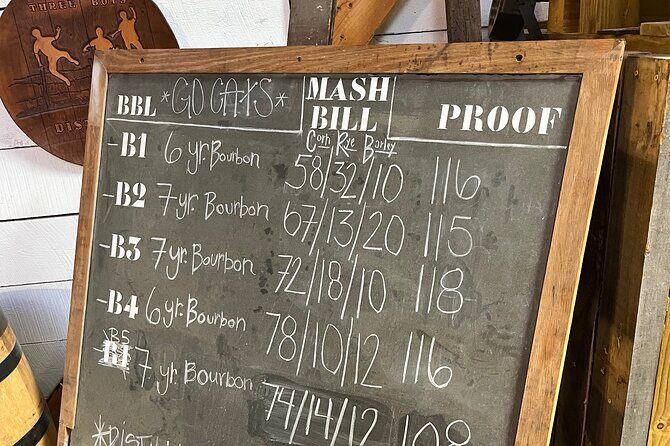 THREE BOYS
DIS
BBL *GO CATS* MASH BILL PROOF
Corn Rye Barley
-B1 6 yr. Bourbon 58/32/10 116
-B2 7 yr. Bourbon 67/13/20 115
-B3 7 yr. Bourbon 72/18/10 118
-B4 6 yr. Bourbon 78/10/12 116
B5 7 yr. Bourbon 74/14/12 108
*DISTILL